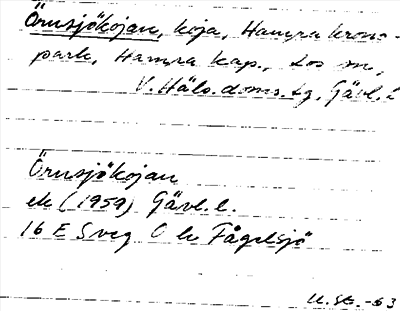 Örnsjökojan, koja, Hamra krono-
park, Hamra kap., Los sn,
V. Häls. doms.tg, Gävl. l
Örnsjökojan
ek (1959) Gävl. l.
16 E Sveg C kv Fågelsjö
U. St. -63